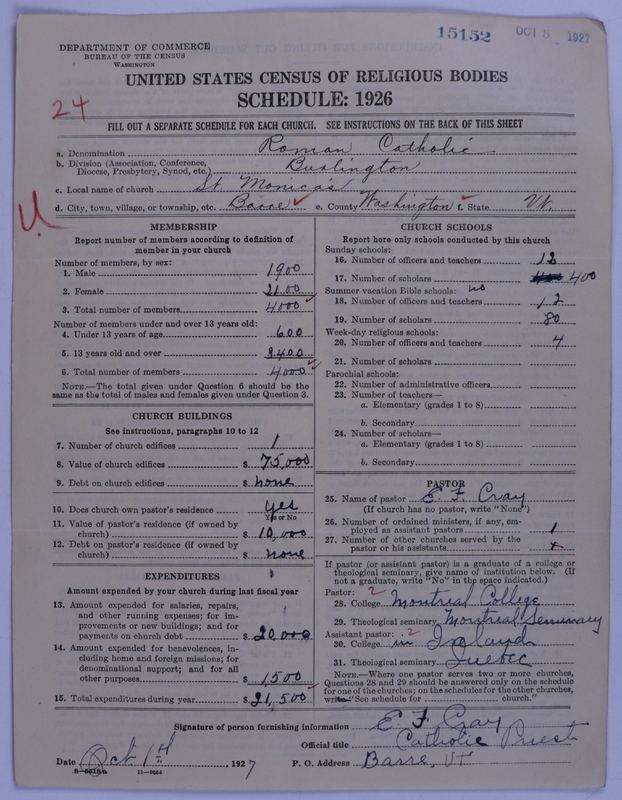 15152 OCT 5 1927
DEPARTMENT OF COMMERCE
BUREAU OF THE CENSUS
WASHINGTON
UNITED STATES CENSUS OF RELIGIOUS BODIES
SCHEDULE: 1926
24
FILL OUT A SEPARATE SCHEDULE FOR EACH CHURCH. SEE INSTRUCTIONS ON THE BACK OF THIS SHEET
a. Denomination Roman Catholic
b. Division (Association, Conference, Diocese, Presbytery, Synod, etc.) Burlington
c. Local name of church St. Monica's
d. City, town, village, or township, etc. Barre e. County Washington f. State Vt.
U
MEMBERSHIP
Report number of members according to definition of
member in your church
Number of members, by sex:
1. Male 1900
2. Female 2100
3. Total number of members 4000
Number of members under and over 13 years old:
4. Under 13 years of age 600
5. 13 years old and over 3400
6. Total number of members 4000
NOTE.—The total given under Question 6 should be the
same as the total of males and females given under Question 3.
CHURCH BUILDINGS
See instructions, paragraphs 10 to 12
7. Number of church edifices 1
8. Value of church edifices $ 75,000
9. Debt on church edifices $ none
10. Does church own pastor's residence yes
Yes or No
11. Value of pastor's residence (if owned by
church) $ 10,000
12. Debt on pastor's residence (if owned by
church) $ none
EXPENDITURES
Amount expended by your church during last fiscal year
13. Amount expended for salaries, repairs,
and other running expenses; for im-
provements or new buildings; and for
payments on church debt $ 20,000
14. Amount expended for benevolences, in-
cluding home and foreign missions; for
denominational support; and for all
other purposes $ 1500
15. Total expenditures during year $ 21,500
CHURCH SCHOOLS
Report here only schools conducted by this church
Sunday schools:
16. Number of officers and teachers 12
17. Number of scholars 400
Summer vacation Bible schools: no
18. Number of officers and teachers 12
19. Number of scholars 80
Week-day religious schools:
20. Number of officers and teachers 4
21. Number of scholars
Parochial schools:
22. Number of administrative officers
23. Number of teachers—
a. Elementary (grades 1 to 8)
b. Secondary
24. Number of scholars—
a. Elementary (grades 1 to 8)
b. Secondary
PASTOR
25. Name of pastor E. F. Cray
(If church has no pastor, write "None")
26. Number of ordained ministers, if any, em-
ployed as assistant pastors 1
27. Number of other churches served by the
pastor or his assistants x
If pastor (or assistant pastor) is a graduate of a college or
theological seminary, give name of institution below. (If
not a graduate, write "No" in the space indicated.)
Pastor: 2
28. College Montreal College
29. Theological seminary Montreal Seminary
Assistant pastor: 2
30. College in Ireland
31. Theological seminary Quebec
NOTE.—Where one pastor serves two or more churches,
Questions 28 and 29 should be answered only on the schedule
for one of the churches; on the schedules for the other churches,
write "See schedule for church."
Signature of person furnishing information E. F. Cray
Official title Catholic Priest
Date Oct 1st, 1927 P. O. Address Barre, Vt
8-5518a 11—9224